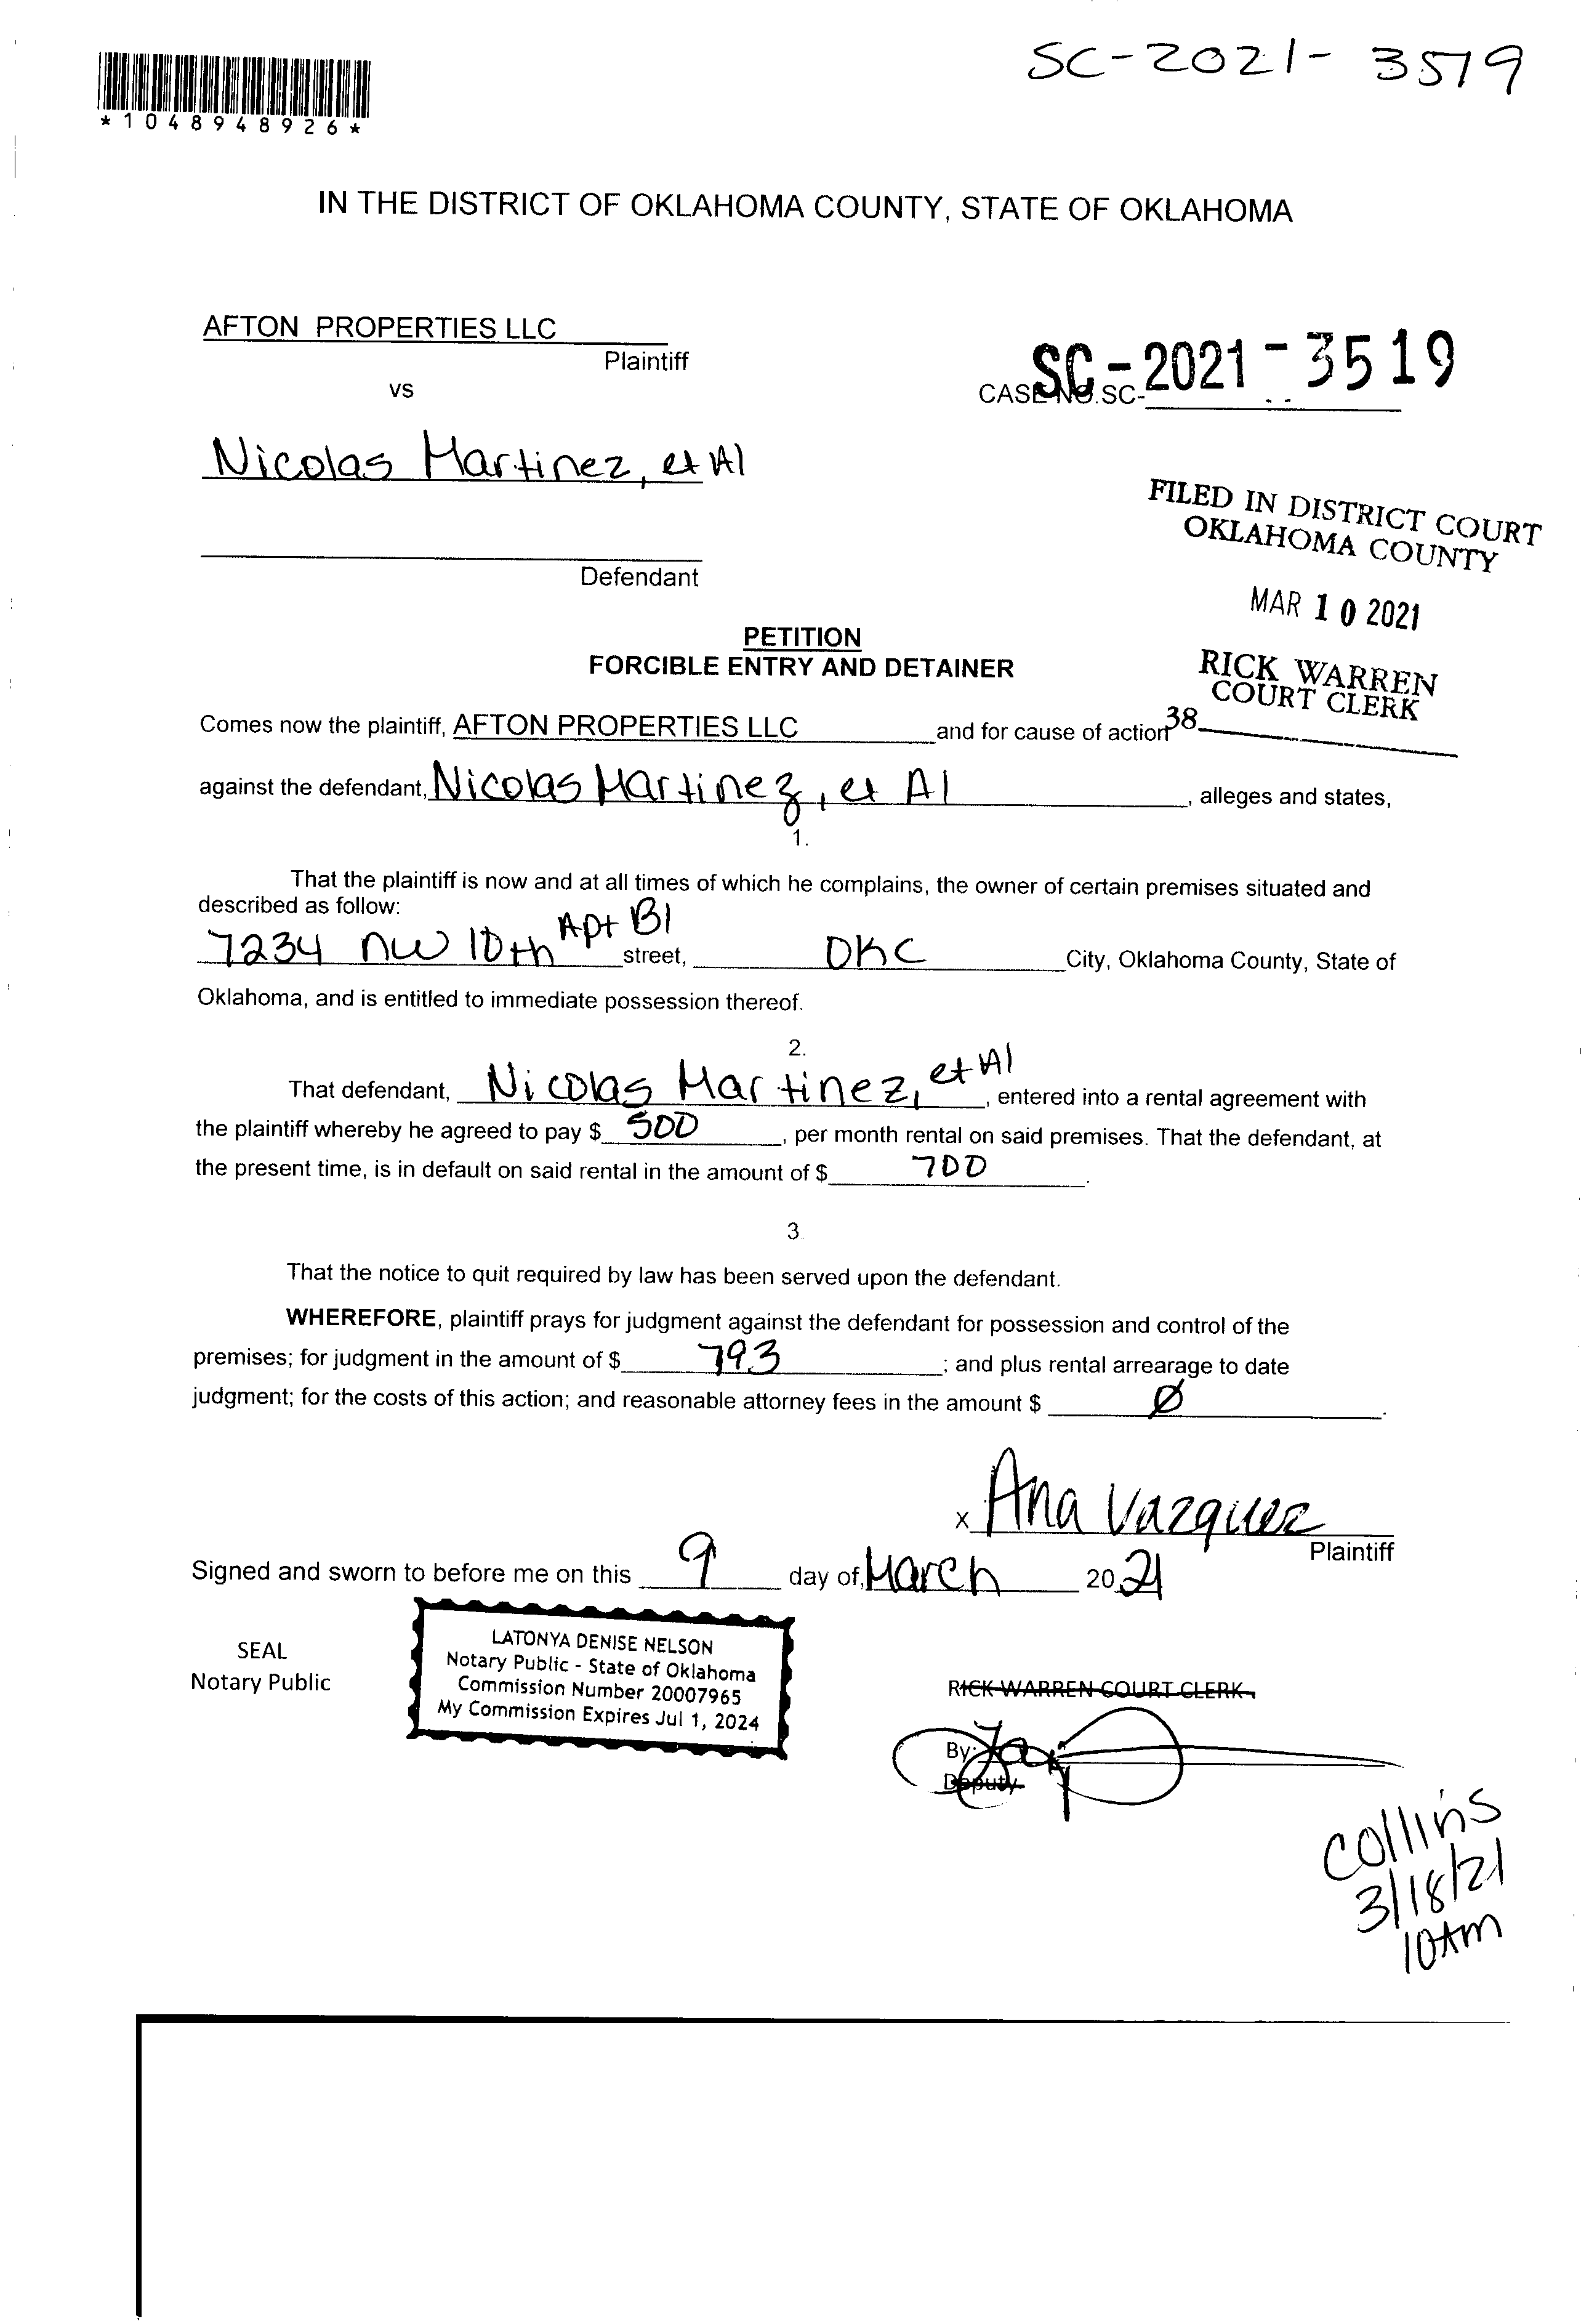 SC-2021-3519
*1048948926*
IN THE DISTRICT OF OKLAHOMA COUNTY, STATE OF OKLAHOMA
AFTON PROPERTIES LLC
Plaintiff
vs
SC-2021-3519
CASE NO.SC-
Nicolas Martinez, et Al
Defendant
FILED IN DISTRICT COURT
OKLAHOMA COUNTY
MAR 10 2021
RICK WARREN
COURT CLERK
38
PETITION
FORCIBLE ENTRY AND DETAINER
Comes now the plaintiff, AFTON PROPERTIES LLC and for cause of action
against the defendant, Nicolas Martinez, et Al, alleges and states,
1.
That the plaintiff is now and at all times of which he complains, the owner of certain premises situated and
described as follow:
7234 NW 10th Apt B1 street, OKC City, Oklahoma County, State of
Oklahoma, and is entitled to immediate possession thereof.
2.
That defendant, Nicolas Martinez, et Al, entered into a rental agreement with
the plaintiff whereby he agreed to pay $ 500, per month rental on said premises. That the defendant, at
the present time, is in default on said rental in the amount of $ 700.
3.
That the notice to quit required by law has been served upon the defendant.
WHEREFORE, plaintiff prays for judgment against the defendant for possession and control of the
premises; for judgment in the amount of $ 793; and plus rental arrearage to date
judgment; for the costs of this action; and reasonable attorney fees in the amount $ Ø.
x Ana Vazquez
Plaintiff
Signed and sworn to before me on this 9 day of, March 2021
SEAL
Notary Public
LATONYA DENISE NELSON
Notary Public - State of Oklahoma
Commission Number 20007965
My Commission Expires Jul 1, 2024
RICK WARREN COURT CLERK
By:
Deputy
Collins
3/18/21
10Am